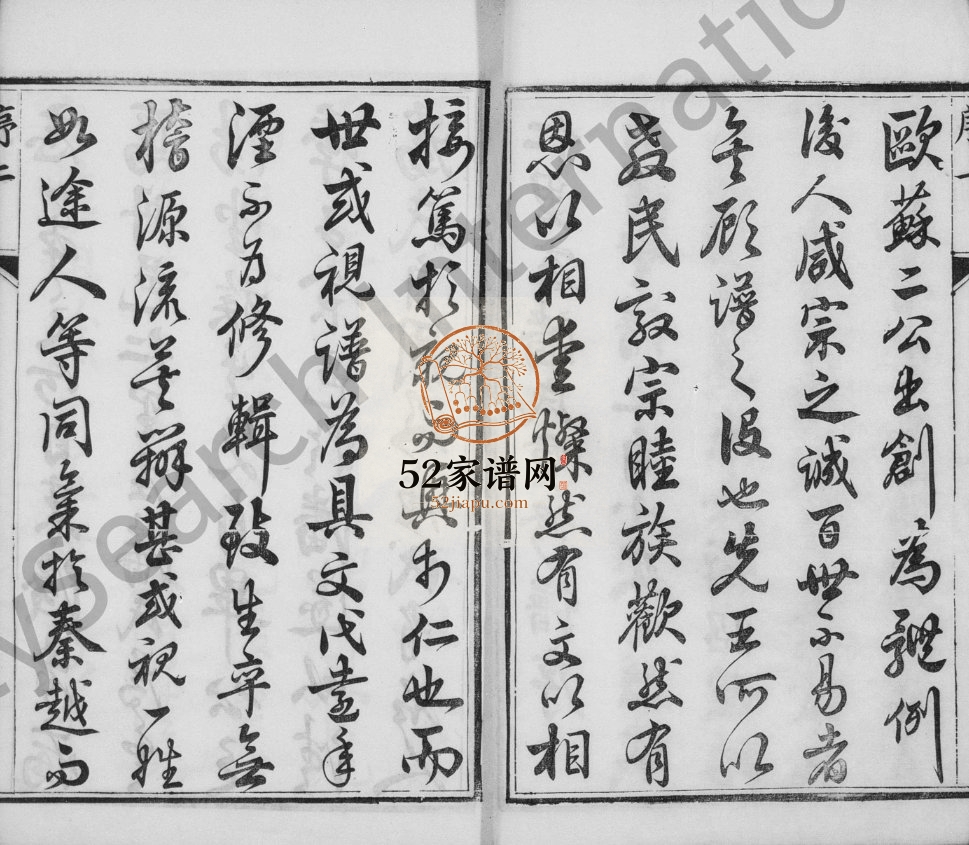 歐蘇二公出創為體例
後人咸宗之誠百世不易者
矣顧譜之設也先王所以
教民敦宗睦族歡然有
恩以相愛燦然有文以相
接篤於親而興於仁也而
世或視譜為具文代遠年
湮不為修輯致生卒無
稽源流莫辨甚或視一姓
如途人等同氣於秦越而
序二
52家谱网
52jiapu.com
ysearch Internatio